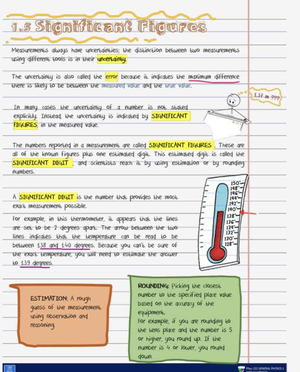 1.5 Significant Figures
Measurements always have uncertainties; the distinction between two measurements
using different tools is in their uncertainty.
The uncertainty is also called the error because it indicates the maximum difference
there is likely to be between the measured value and the true value.
1.57 m ???
In many cases the uncertainty of a number is not stated
explicitly. Instead the uncertainty is indicated by SIGNIFICANT
FIGURES, in the measured value.
The numbers reported in a measurement are called SIGNIFICANT FIGURES. These are
all of the known figures plus one estimated digit. This estimated digit is called the
SIGNIFICANT DIGIT, and scientists reach it by using estimation or by rounding
numbers.
A SIGNIFICANT DIGIT is the number that provides the most
exact measurement possible.
For example, in this thermometer, it appears that the lines
are set to be 2 degrees apart. The arrow between the two
lines indicates that the temperature can be read to be
between 138 and 140 degrees. Because you can't be sure of
the exact temperature, you will need to estimate the answer
to 139 degrees.
ESTIMATION: A rough
guess of the measurement
using observation and
reasoning.
ROUNDING: Picking the closest
number to the specified place value
based on the accuracy of the
equipment.
For example, if you are rounding to
the tens place and the number is 5
or higher, you round up. If the
number is 4 or lower, you round
down.